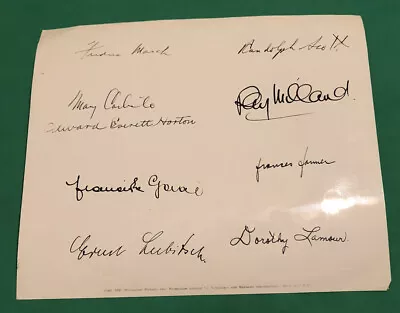 Fredric March
Randolph Scott
Mary Carlisle
Ray Milland.
Edward Everett Horton
frances farmer
Ernst Lubitsch.
Dorothy Lamour